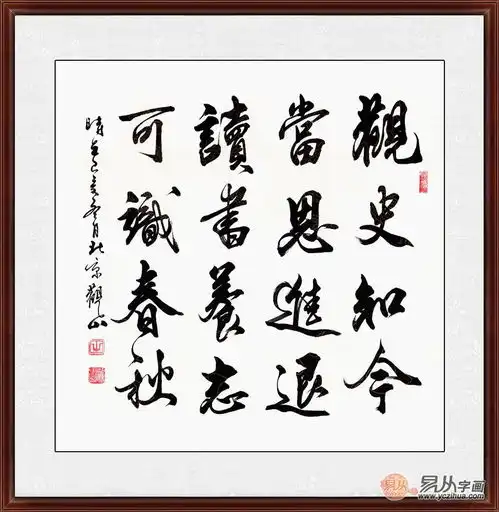 觀史知今
當思進退
讀書養志
可識春秋
時在己亥冬月北京觀山
易从字画
www.yczihua.com